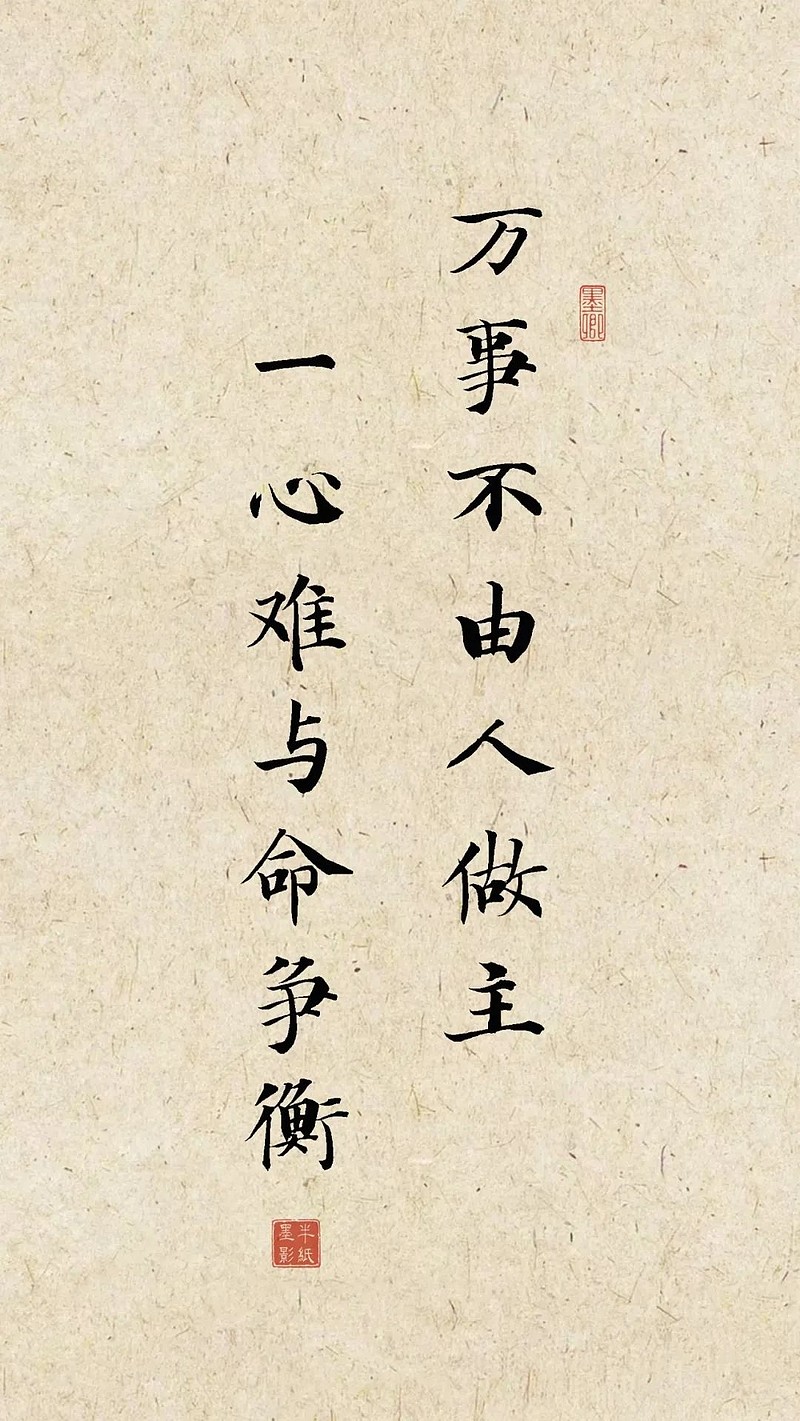 万事不由人做主
一心难与命争衡
墨卿
半纸墨影